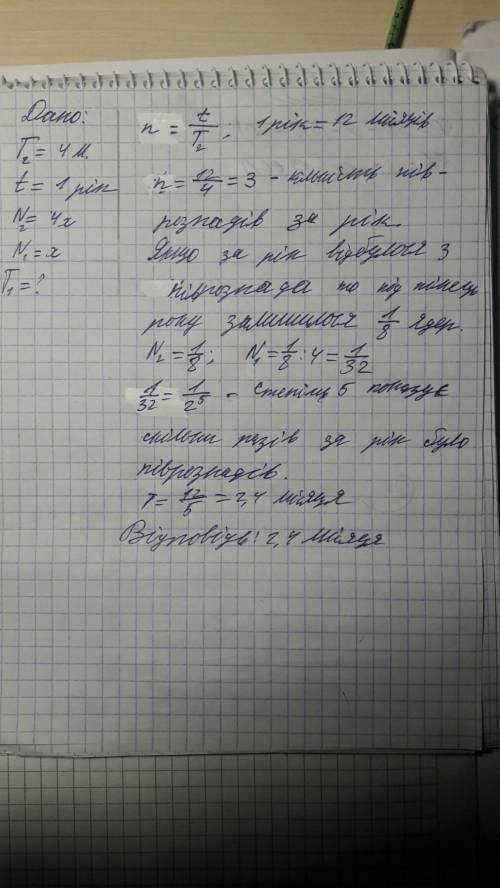 Дано:
T₂ = 4 м.
t = 1 рік
N₂ = 4x
N₁ = x
T₁ = ?
n = t/T₂ ; 1 рік = 12 місяців
n = 12/4 = 3 - кількість пів-
розпадів за рік.
Якщо за рік відбулося 3
піврозпада то під кінець
року залишилося 1/8 ядер.
N₂ = 1/8 ; N₁ = 1/8 : 4 = 1/32
1/32 = 1/2⁵ - степінь 5 показує
скільки разів за рік було
піврозпадів.
T = 12/5 = 2,4 місяця
Відповідь: 2,4 місяця